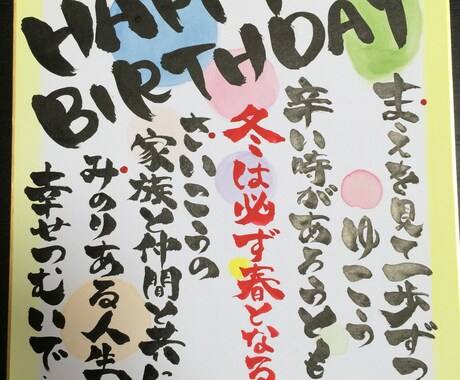 HAPPY
BIRTHDAY
まえを見て一歩ずつ
ゆこう
辛い時があろうとも
冬は必ず春となる
さいこうの
家族と仲間と共に
みのりある人生
幸せつむいで